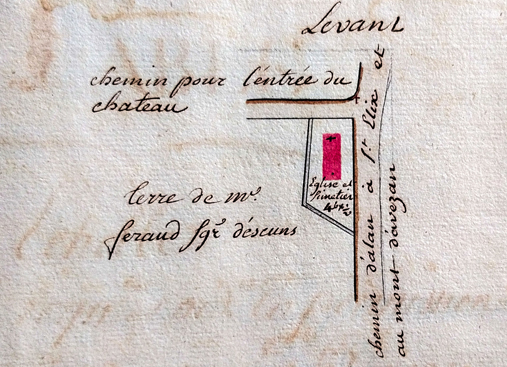 Levant
chemin pour l'entrée du
chateau
Eglise et
simetier
terre de mr.
feraud sgr. d'éscuns
chemin d'alan à st. Elix et
au mont d'avezan